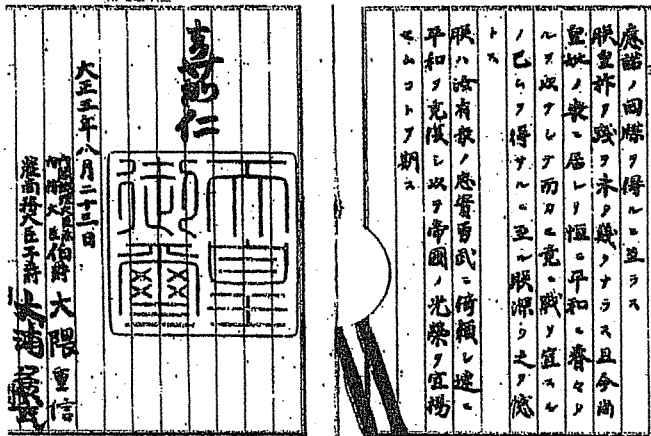 應諾ノ囘牒ヲ得ルニ至ラス
朕皇祚ヲ踐テ未タ幾クナラス且今尚
皇妣ノ喪ニ居レリ恒ニ平和ニ眷々タ
ルヲ以テシテ而カモ竟ニ戰ヲ宣スル
ノ已ムヲ得サルニ至ル朕深ク之ヲ憾
トス
朕ハ汝有衆ノ忠實勇武ニ倚頼シ速ニ
平和ヲ克復シ以テ帝國ノ光榮ヲ宣揚
セムコトヲ期ス
嘉仁
天皇
御璽
大正三年八月二十三日
內務大臣伯爵 大隈重信
農商務大臣子爵 大浦兼武